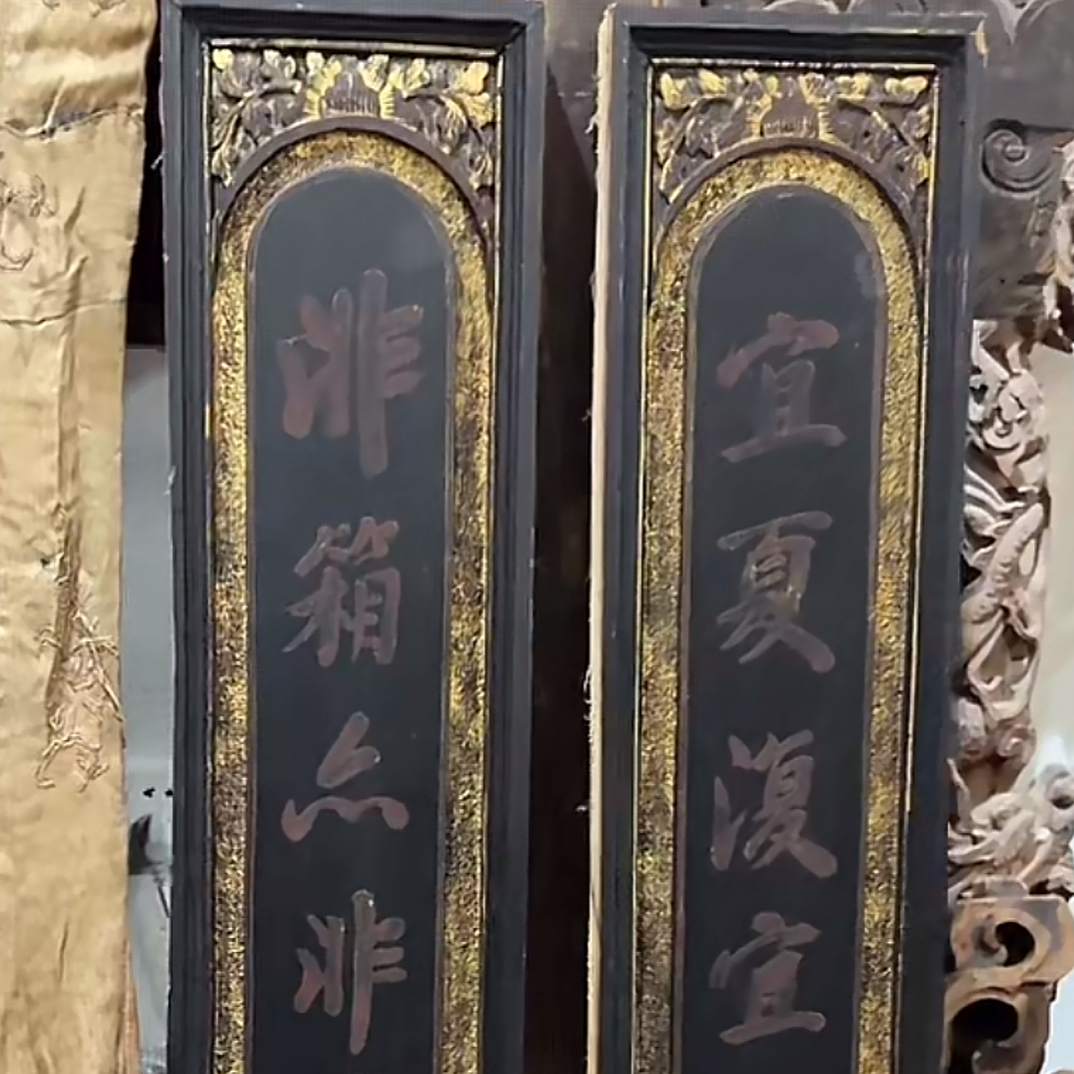 宜夏復宜
非箱亦非